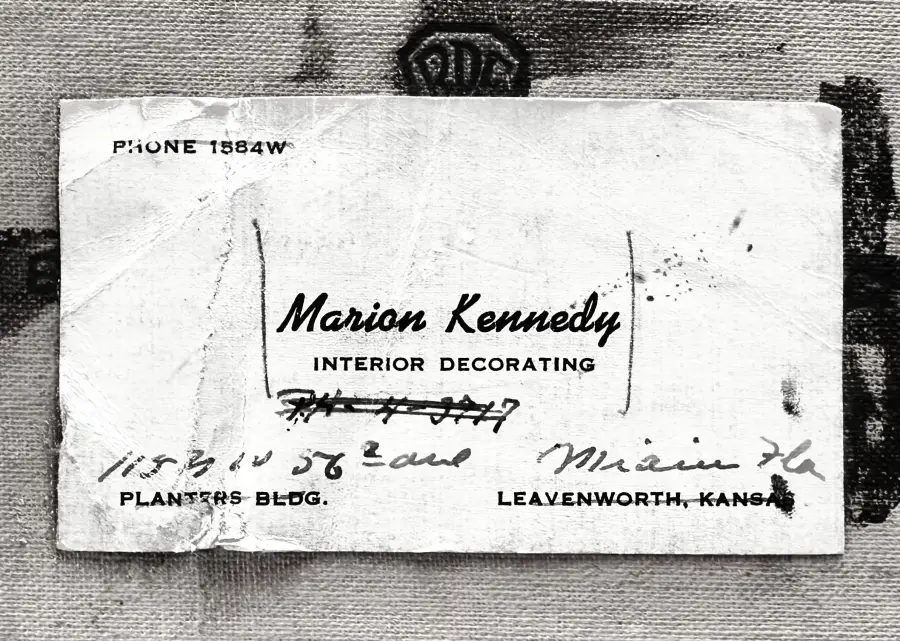 PHONE 1584W
Marion Kennedy
INTERIOR DECORATING
56 ave Miami Fla
PLANTERS BLDG. LEAVENWORTH, KANSAS